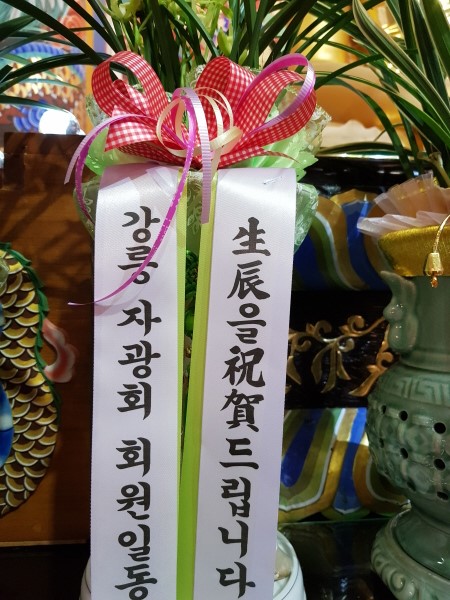 生辰을祝賀드립니다
강릉 자광회 회원일동